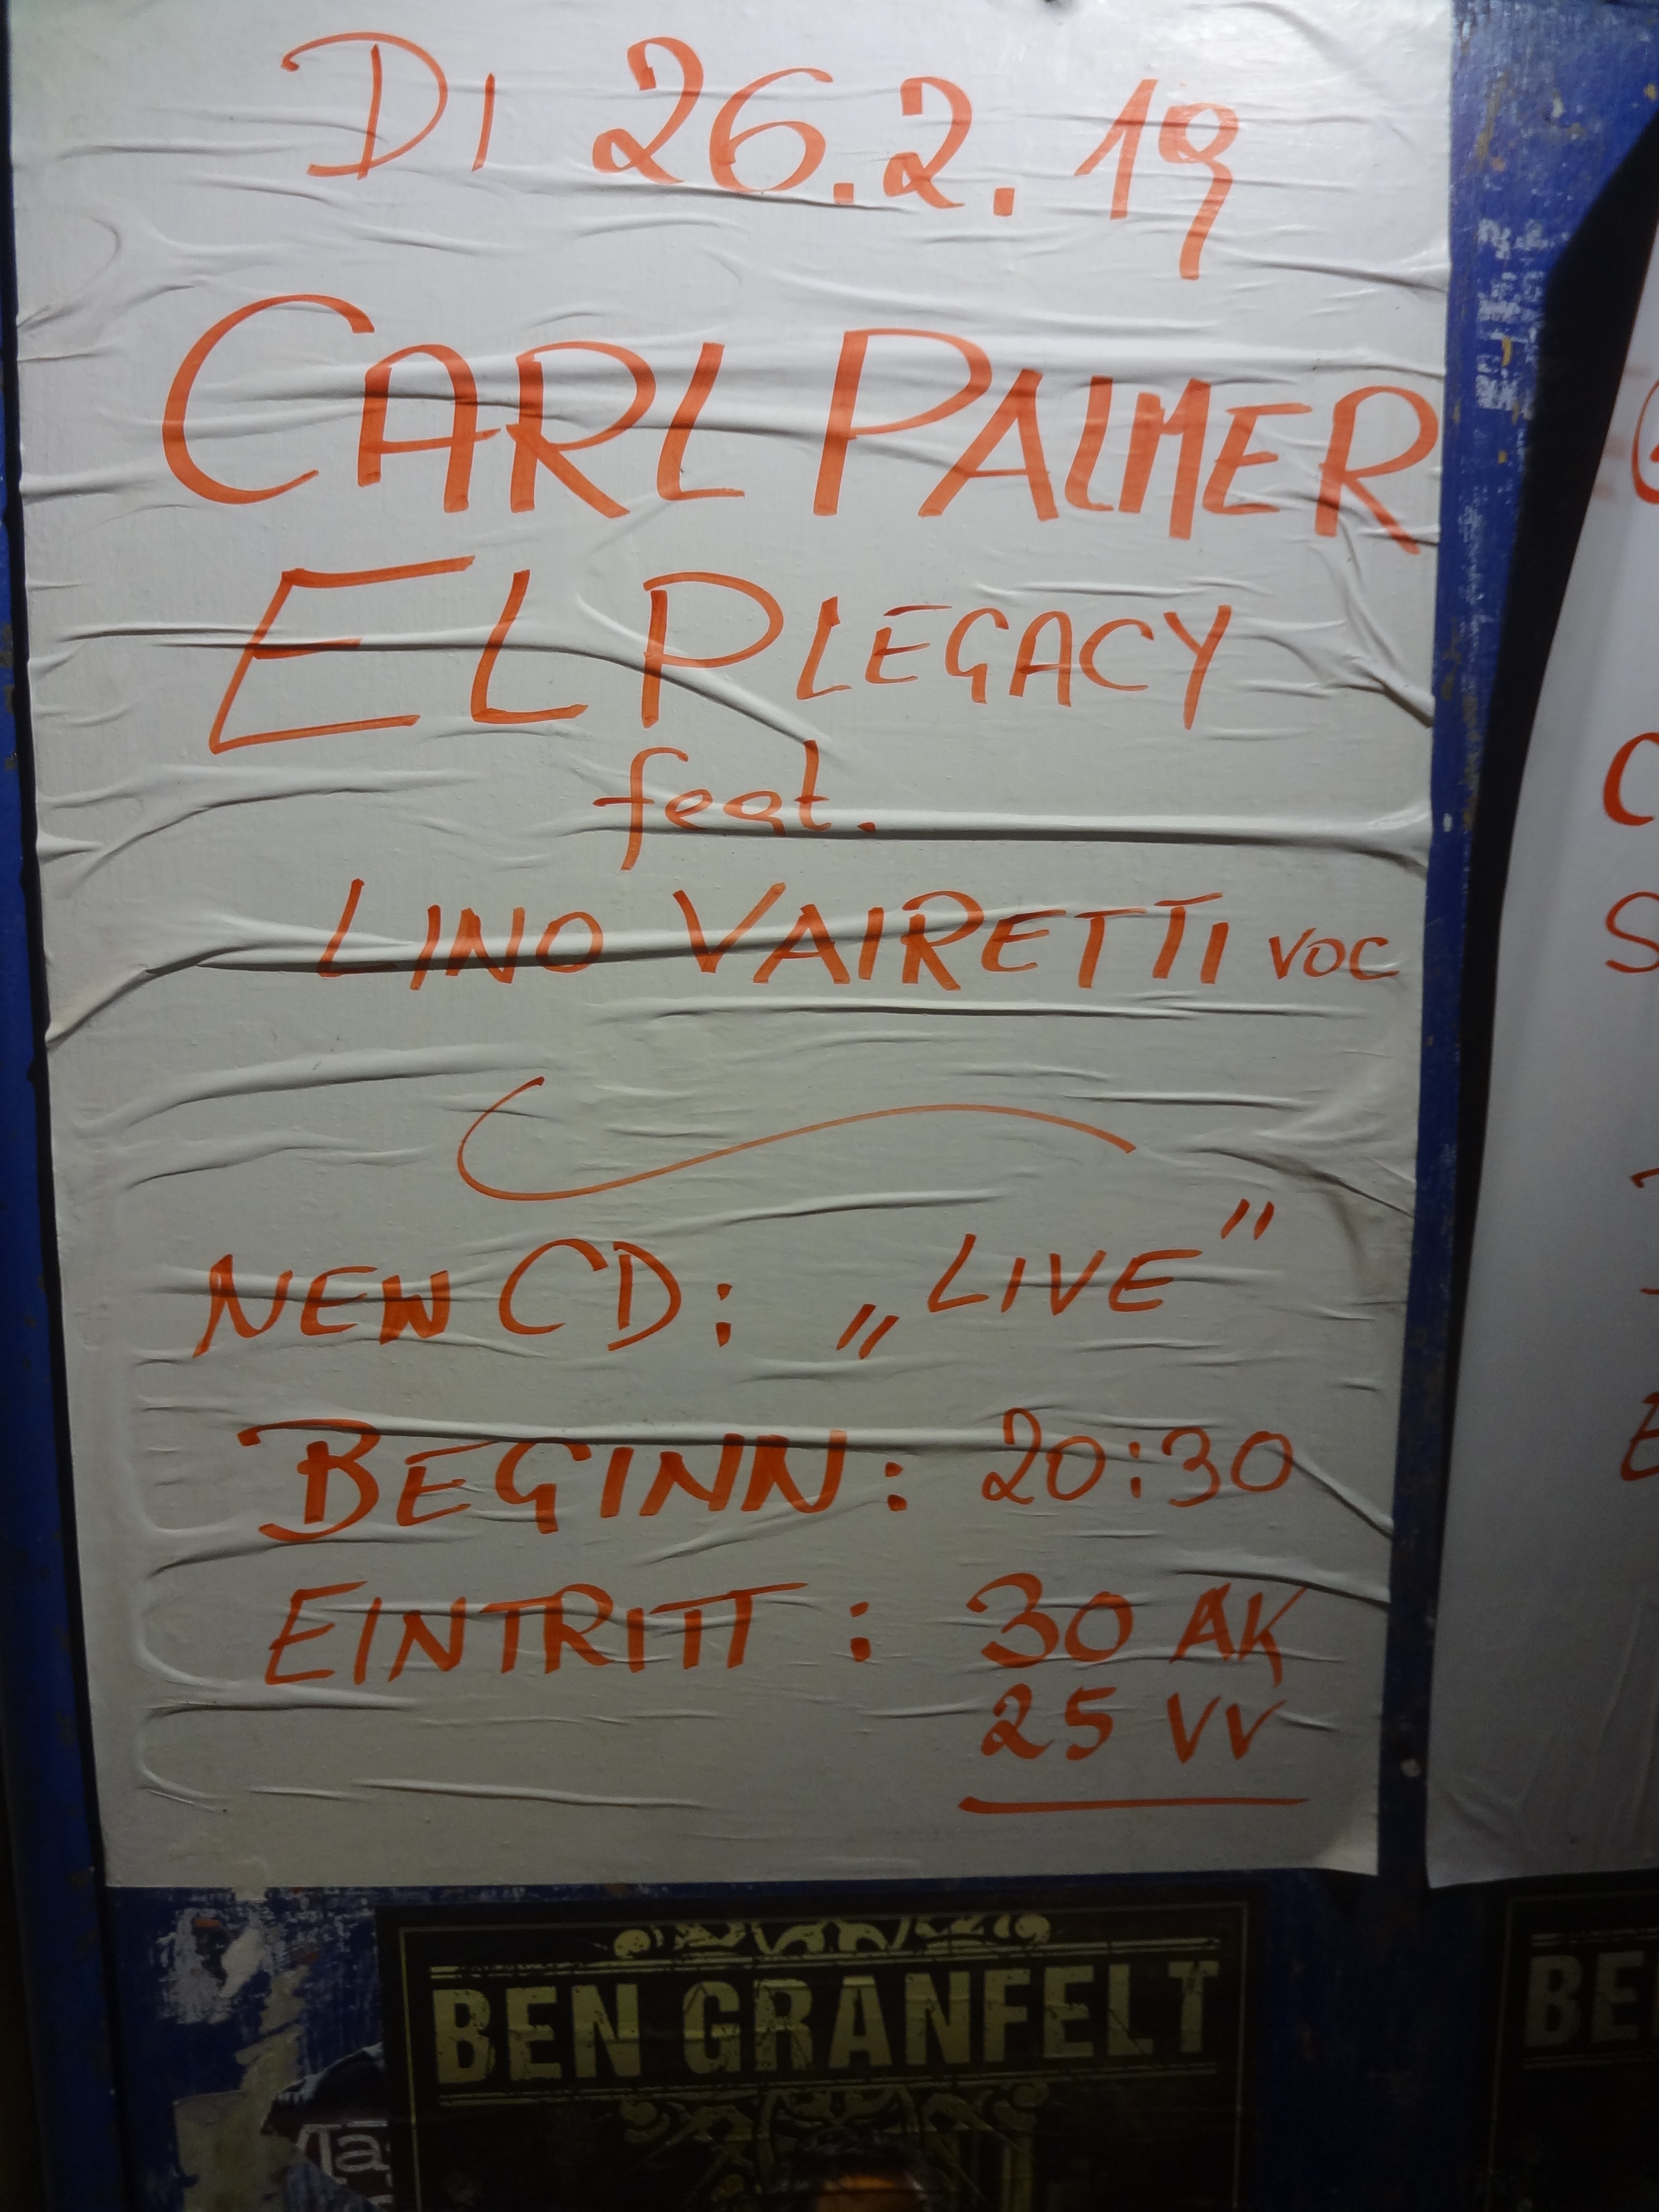 DI 26.2.19
CARL PALMER
ELP LEGACY
feat.
LINO VAIRETTI VOC
NEW CD: „LIVE”
BEGINN: 20:30
EINTRITT: 30 AK
25 VV
BEN GRANFELT